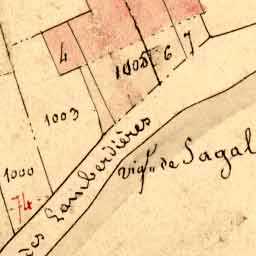 4
1005
6
7
1003
1000
74
des Lamberdières
vig. de Sagal